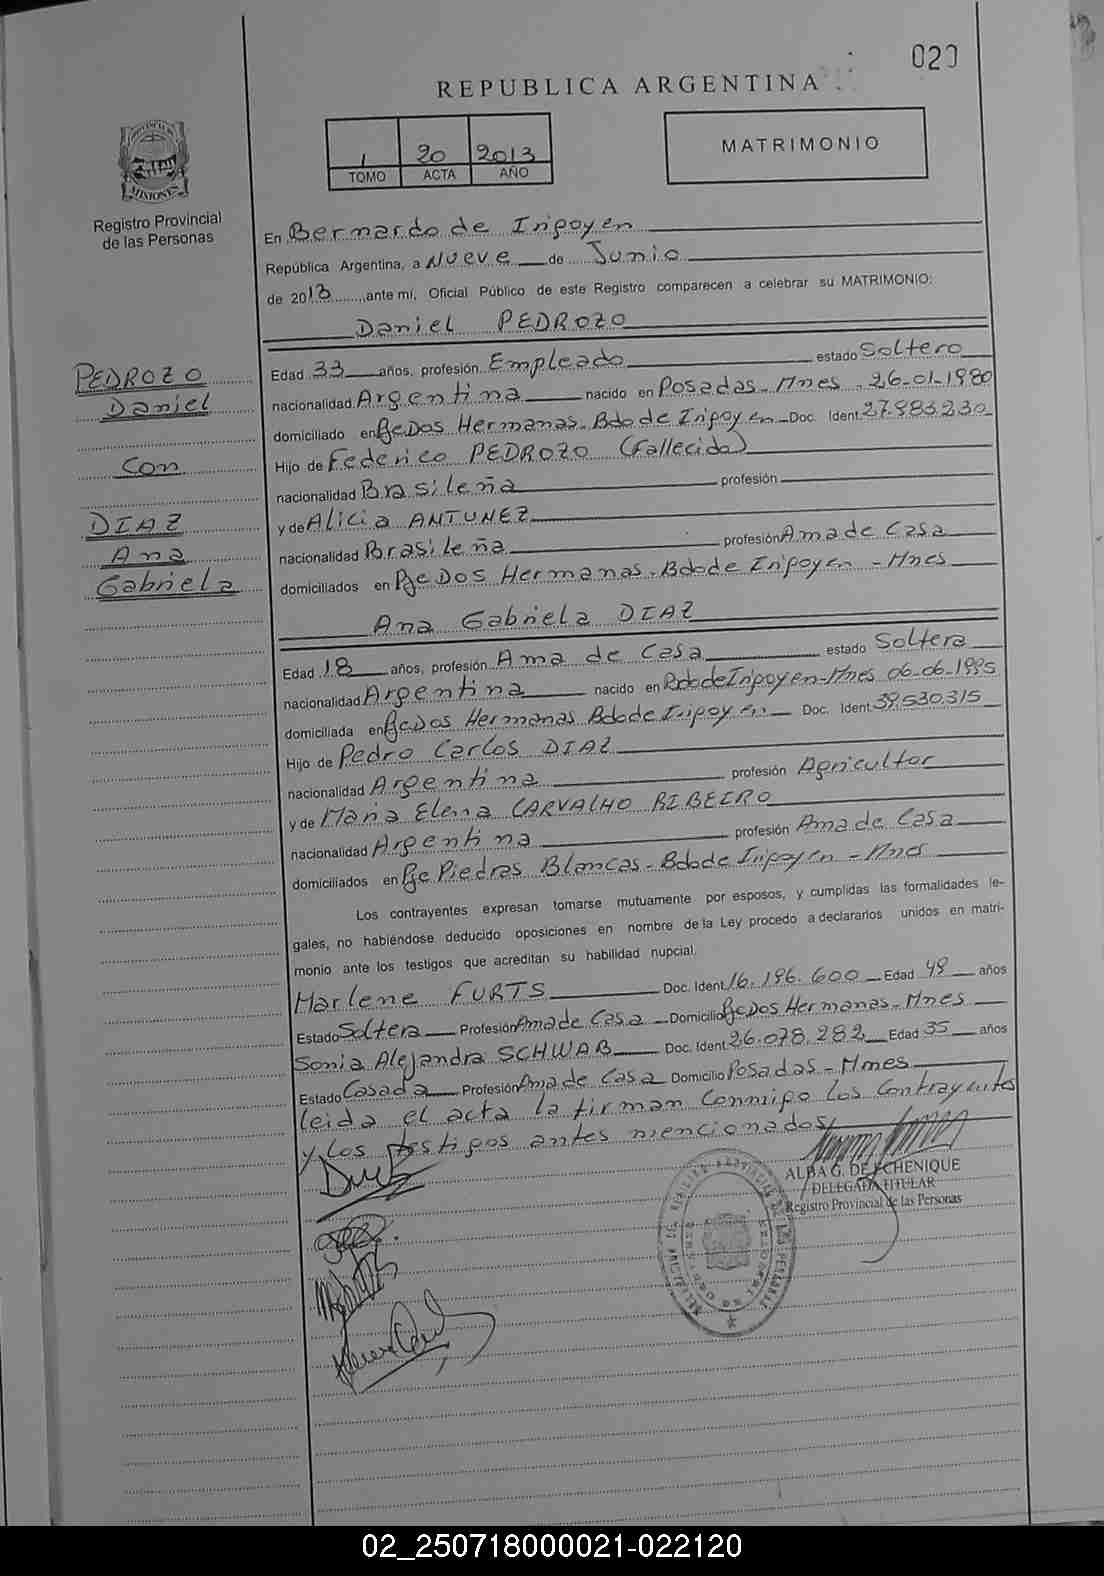 020
REPUBLICA ARGENTINA
1 20 2013
TOMO ACTA AÑO
MATRIMONIO
PROVINCIA DE MISIONES
Registro Provincial
de las Personas
En Bernardo de Irigoyen
República Argentina, a Nueve de Junio
de 2013, ante mí, Oficial Público de este Registro comparecen a celebrar su MATRIMONIO:
Daniel PEDROZO
PEDROZO
Daniel
Con
DIAZ
Ana
Gabriela
Edad 33 años, profesión Empleado estado Soltero
nacionalidad Argentina nacido en Posadas-Mnes. 26-01-1980
domiciliado en Pje Dos Hermanas-Bdo de Irigoyen Doc. Ident. 27.983.230
Hijo de Federico PEDROZO (Fallecido)
nacionalidad Brasileña profesión
y de Alicia ANTUNEZ
nacionalidad Brasileña profesión Ama de Casa
domiciliados en Pje Dos Hermanas-Bdo de Irigoyen-Mnes
Ana Gabriela DIAZ
Edad 18 años, profesión Ama de Casa estado Soltera
nacionalidad Argentina nacido en Bdo de Irigoyen-Mnes 06-06-1995
domiciliada en Pje Dos Hermanas Bdo de Irigoyen Doc. Ident. 39.530.315
Hijo de Pedro Carlos DIAZ
nacionalidad Argentina profesión Agricultor
y de Maria Elena CARVALHO RIBEIRO
nacionalidad Argentina profesión Ama de Casa
domiciliados en Pje Piedras Blancas-Bdo de Irigoyen-Mnes
Los contrayentes expresan tomarse mutuamente por esposos, y cumplidas las formalidades le-
gales, no habiéndose deducido oposiciones en nombre de la Ley procedo a declararlos unidos en matri-
monio ante los testigos que acreditan su habilidad nupcial.
Marlene FURTS Doc. Ident. 16.196.600 Edad 48 años
Estado Soltera Profesión Ama de Casa Domicilio Pje Dos Hermanas-Mnes
Sonia Alejandra SCHWAB Doc. Ident. 26.078.282 Edad 35 años
Estado Casada Profesión Ama de Casa Domicilio Posadas-Mnes
leida el acta la firman conmigo los Contrayentes
y los testigos antes mencionados
ALBA G. DE ECHENIQUE
DELEGADA TITULAR
Registro Provincial de las Personas
02_250718000021-022120